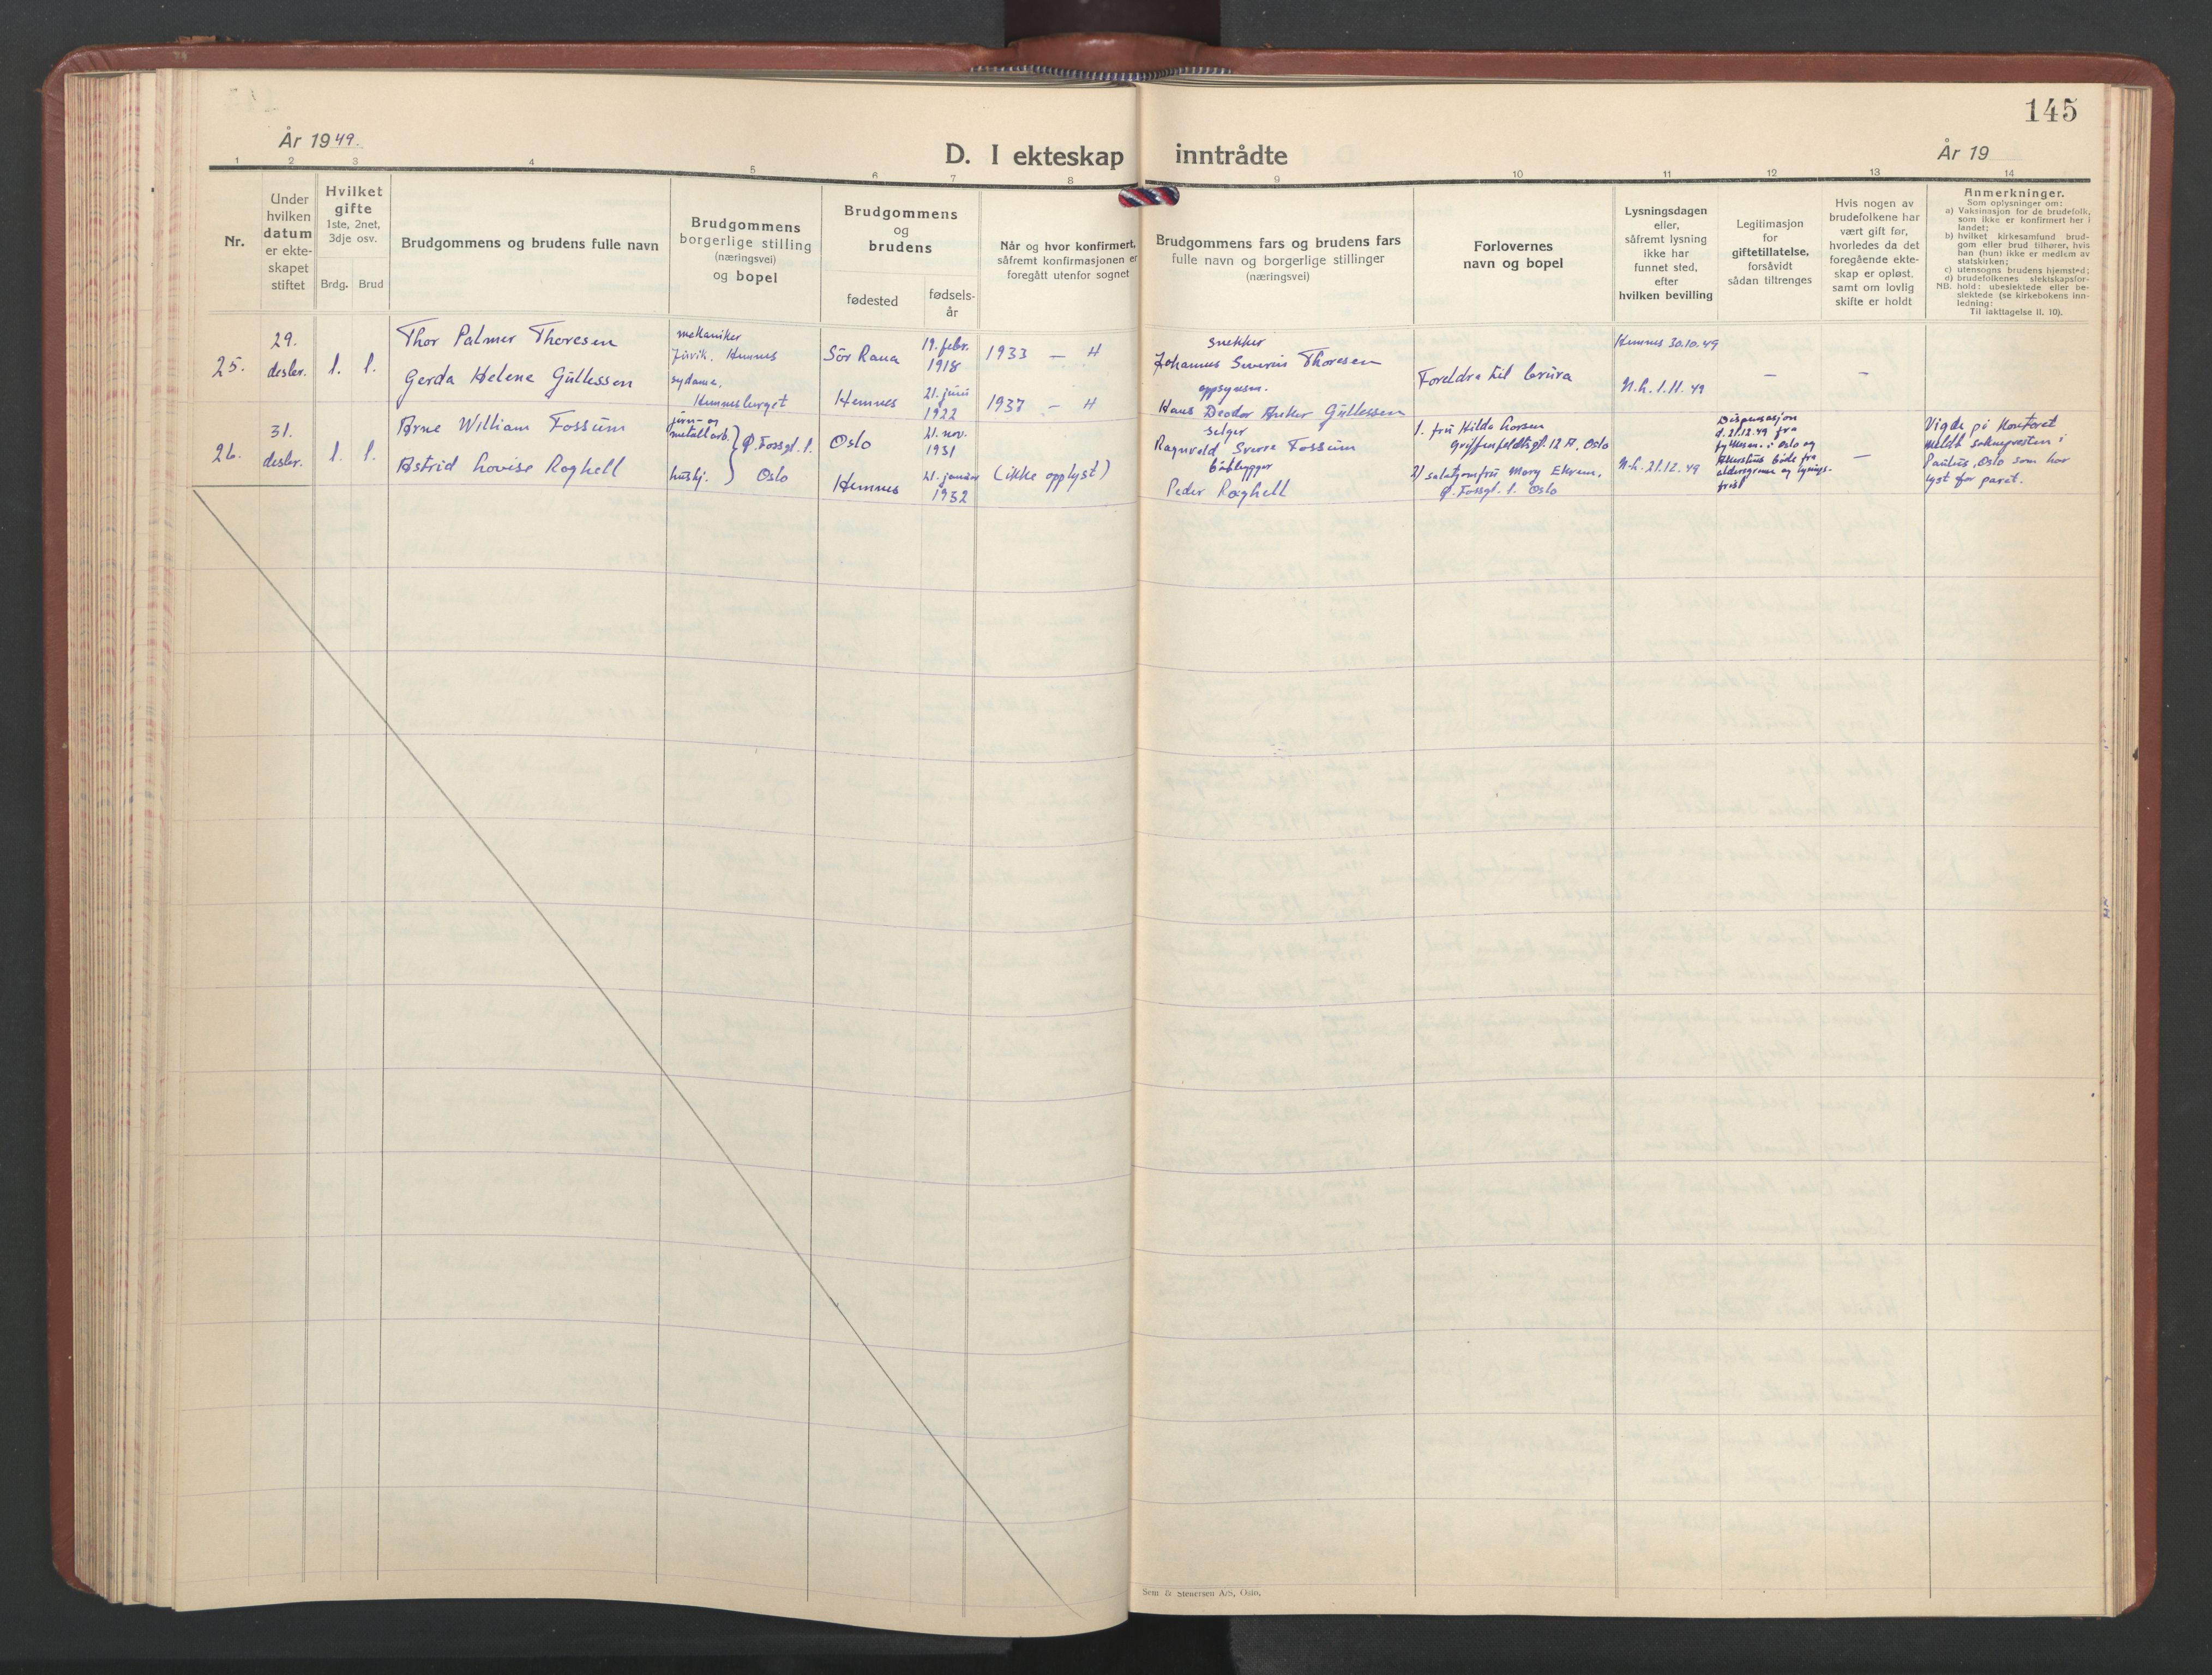 145
År 1949.
D. I ekteskap inntrådte
År 19
1 2 3 4 5 6 7 8 9 10 11 12 13 14
Nr.
Under
hvilken
datum
er ekte-
skapet
stiftet
Hvilket
gifte
1ste, 2net,
3dje osv.
Brdg. Brud
Brudgommens og brudens fulle navn
Brudgommens
borgerlige stilling
(næringsvei)
og bopel
Brudgommens
og
brudens
fødested
fødsels-
år
Når og hvor konfirmert,
såfremt konfirmasjonen er
foregått utenfor sognet
Brudgommens fars og brudens fars
fulle navn og borgerlige stillinger
(næringsvei)
Forlovernes
navn og bopel
Lysningsdagen
eller,
såfremt lysning
ikke har
funnet sted,
efter
hvilken bevilling
Legitimasjon
for
giftetillatelse,
forsåvidt
sådan tiltrenges
Hvis nogen av
brudefolkene har
vært gift før,
hvorledes da det
foregående ekte-
skap er opløst,
samt om lovlig
skifte er holdt
Anmerkninger.
Som oplysninger om:
a) Vaksinasjon for de brudefolk,
som ikke er konfirmert her i
landet;
b) hvilket kirkesamfund brud-
gom eller brud tilhører, hvis
han (hun) ikke er medlem av
statskirken;
c) utensogns brudens hjemsted;
d) brudefolkenes slektskapsfor-
hold: ubeslektede eller be-
slektede (se kirkebokens inn-
ledning:
NB. Til iakttagelse II, 10).
25.
29.
desbr.
1. 1.
Thor Palmer Thoresen
Gerda Helene Gullessen
mekaniker
Hemnes
sydame.
Hemnesberget
Sör Rana
Hemnes
19. febr.
1918
21. juni
1922
1933 — H
1937 — H
snekker
Johannes Severin Thoresen
oppsynsm.
Hans Deodor Anker Gullessen
Foreldra til brura
Hemnes 30.10.49
N.h. 1.11.49
—
—
26.
31.
desbr.
1. 1.
Arne William Fossum
Astrid Lovise Roghell
jern- og
metallarb.
hushj.
Ø. Fossgt. 1.
Oslo
Oslo
Hemnes
21. nov.
1931
21. januar
1932
(ikke opplyst)
selger
Ragnvald Sverre Fossum
båtbygger
Peder Roghell
1. fru Hilda Larsen
Griffenfeldtsgt. 12 A, Oslo
2/ salatjomfru Mary Ekrem,
Ø. Fossgt. 1. Oslo
N.h. 21.12.49
Dispensasjon
d. 21.12.49 fra
fylkesm. i Oslo og
Akershus både fra
aldersgrense og lysings-
frist
—
Vigde på kontoret
meldt soknepresten i
Paulus, Oslo som har
lyst for paret.
Sem & Stenersen A/S, Oslo.